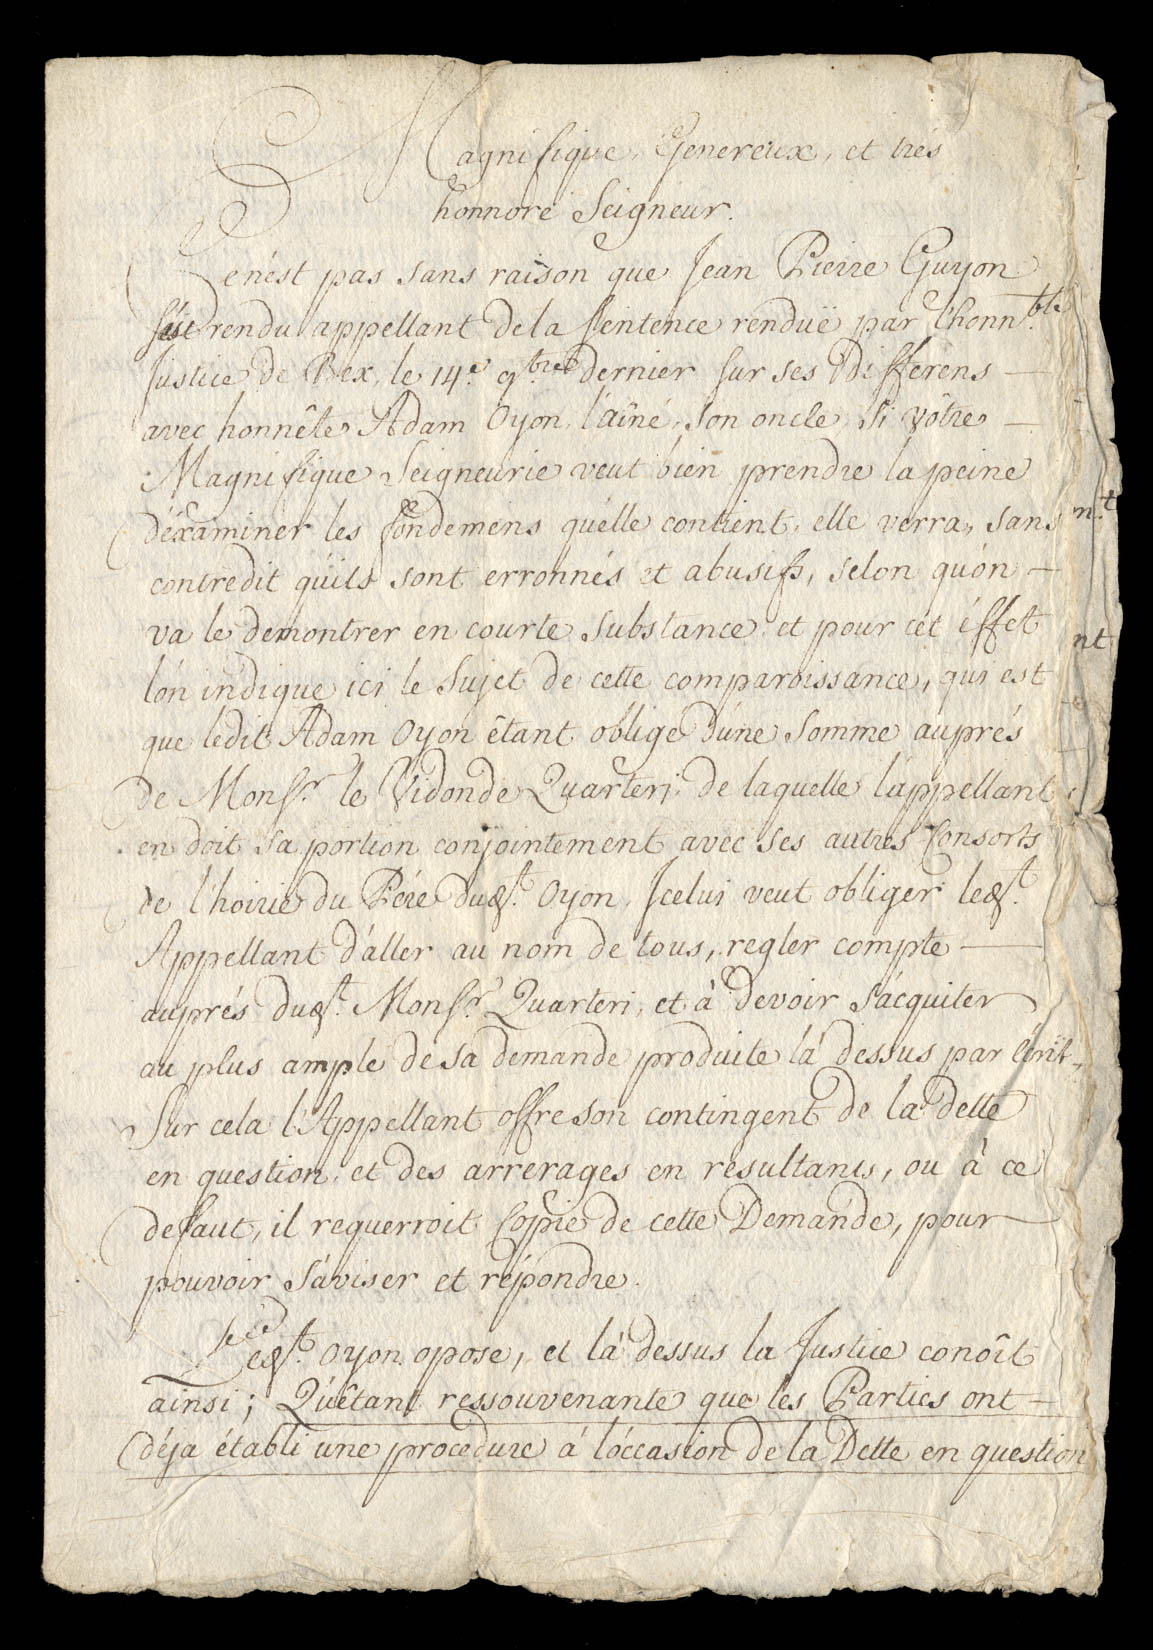 Magnifique, Genereux, et trés
honnoré Seigneur.
Ce n'est pas sans raison que Jean Pierre Guyon
s'est rendu appellant de la sentence renduë par l'honn.ble
Justice de Bex, le 14.e 9.bre dernier sur ses Differens —
avec honnête Adam Oyon, l'aîné, son oncle, si vôtre —
Magnifique Seigneurie veut bien prendre la peine
d'éxaminer les fondemens qu'elle contient, elle verra, sans
contredit qu'ils sont erronnés et abusifs, selon qu'on —
va le demontrer en courte substance, et pour cet éffet
l'on indique ici le sujet de cette comparoissance, qui est
que ledit Adam Oyon êtant obligé d'une somme auprés
de Monsr. le Vidonde Quarteri, de laquelle l'appellant
en doit sa portion conjointement avec ses autres Consorts
de l'hoirie du Pére dud.t Oyon, Icelui veut obliger led.t
Appellant d'aller au nom de tous, regler compte —
auprés dud.t Monsr. Quarteri, et à devoir s'acquiter
au plus ample de sa demande produite là dessus par écrit.
Sur cela l'Appellant offre son contingent de la dette
en question, et des arrerages en résultants, ou à ce
defaut, il requerroit Copie de cette Demande, pour
pouvoir s'aviser et répondre.
Oyon opose, et là dessus la Justice conoît
ainsi; Qu'êtant ressouvenante que les Parties ont —
déja établi une procedure à l'occasion de la Dette en question
n.t
nt